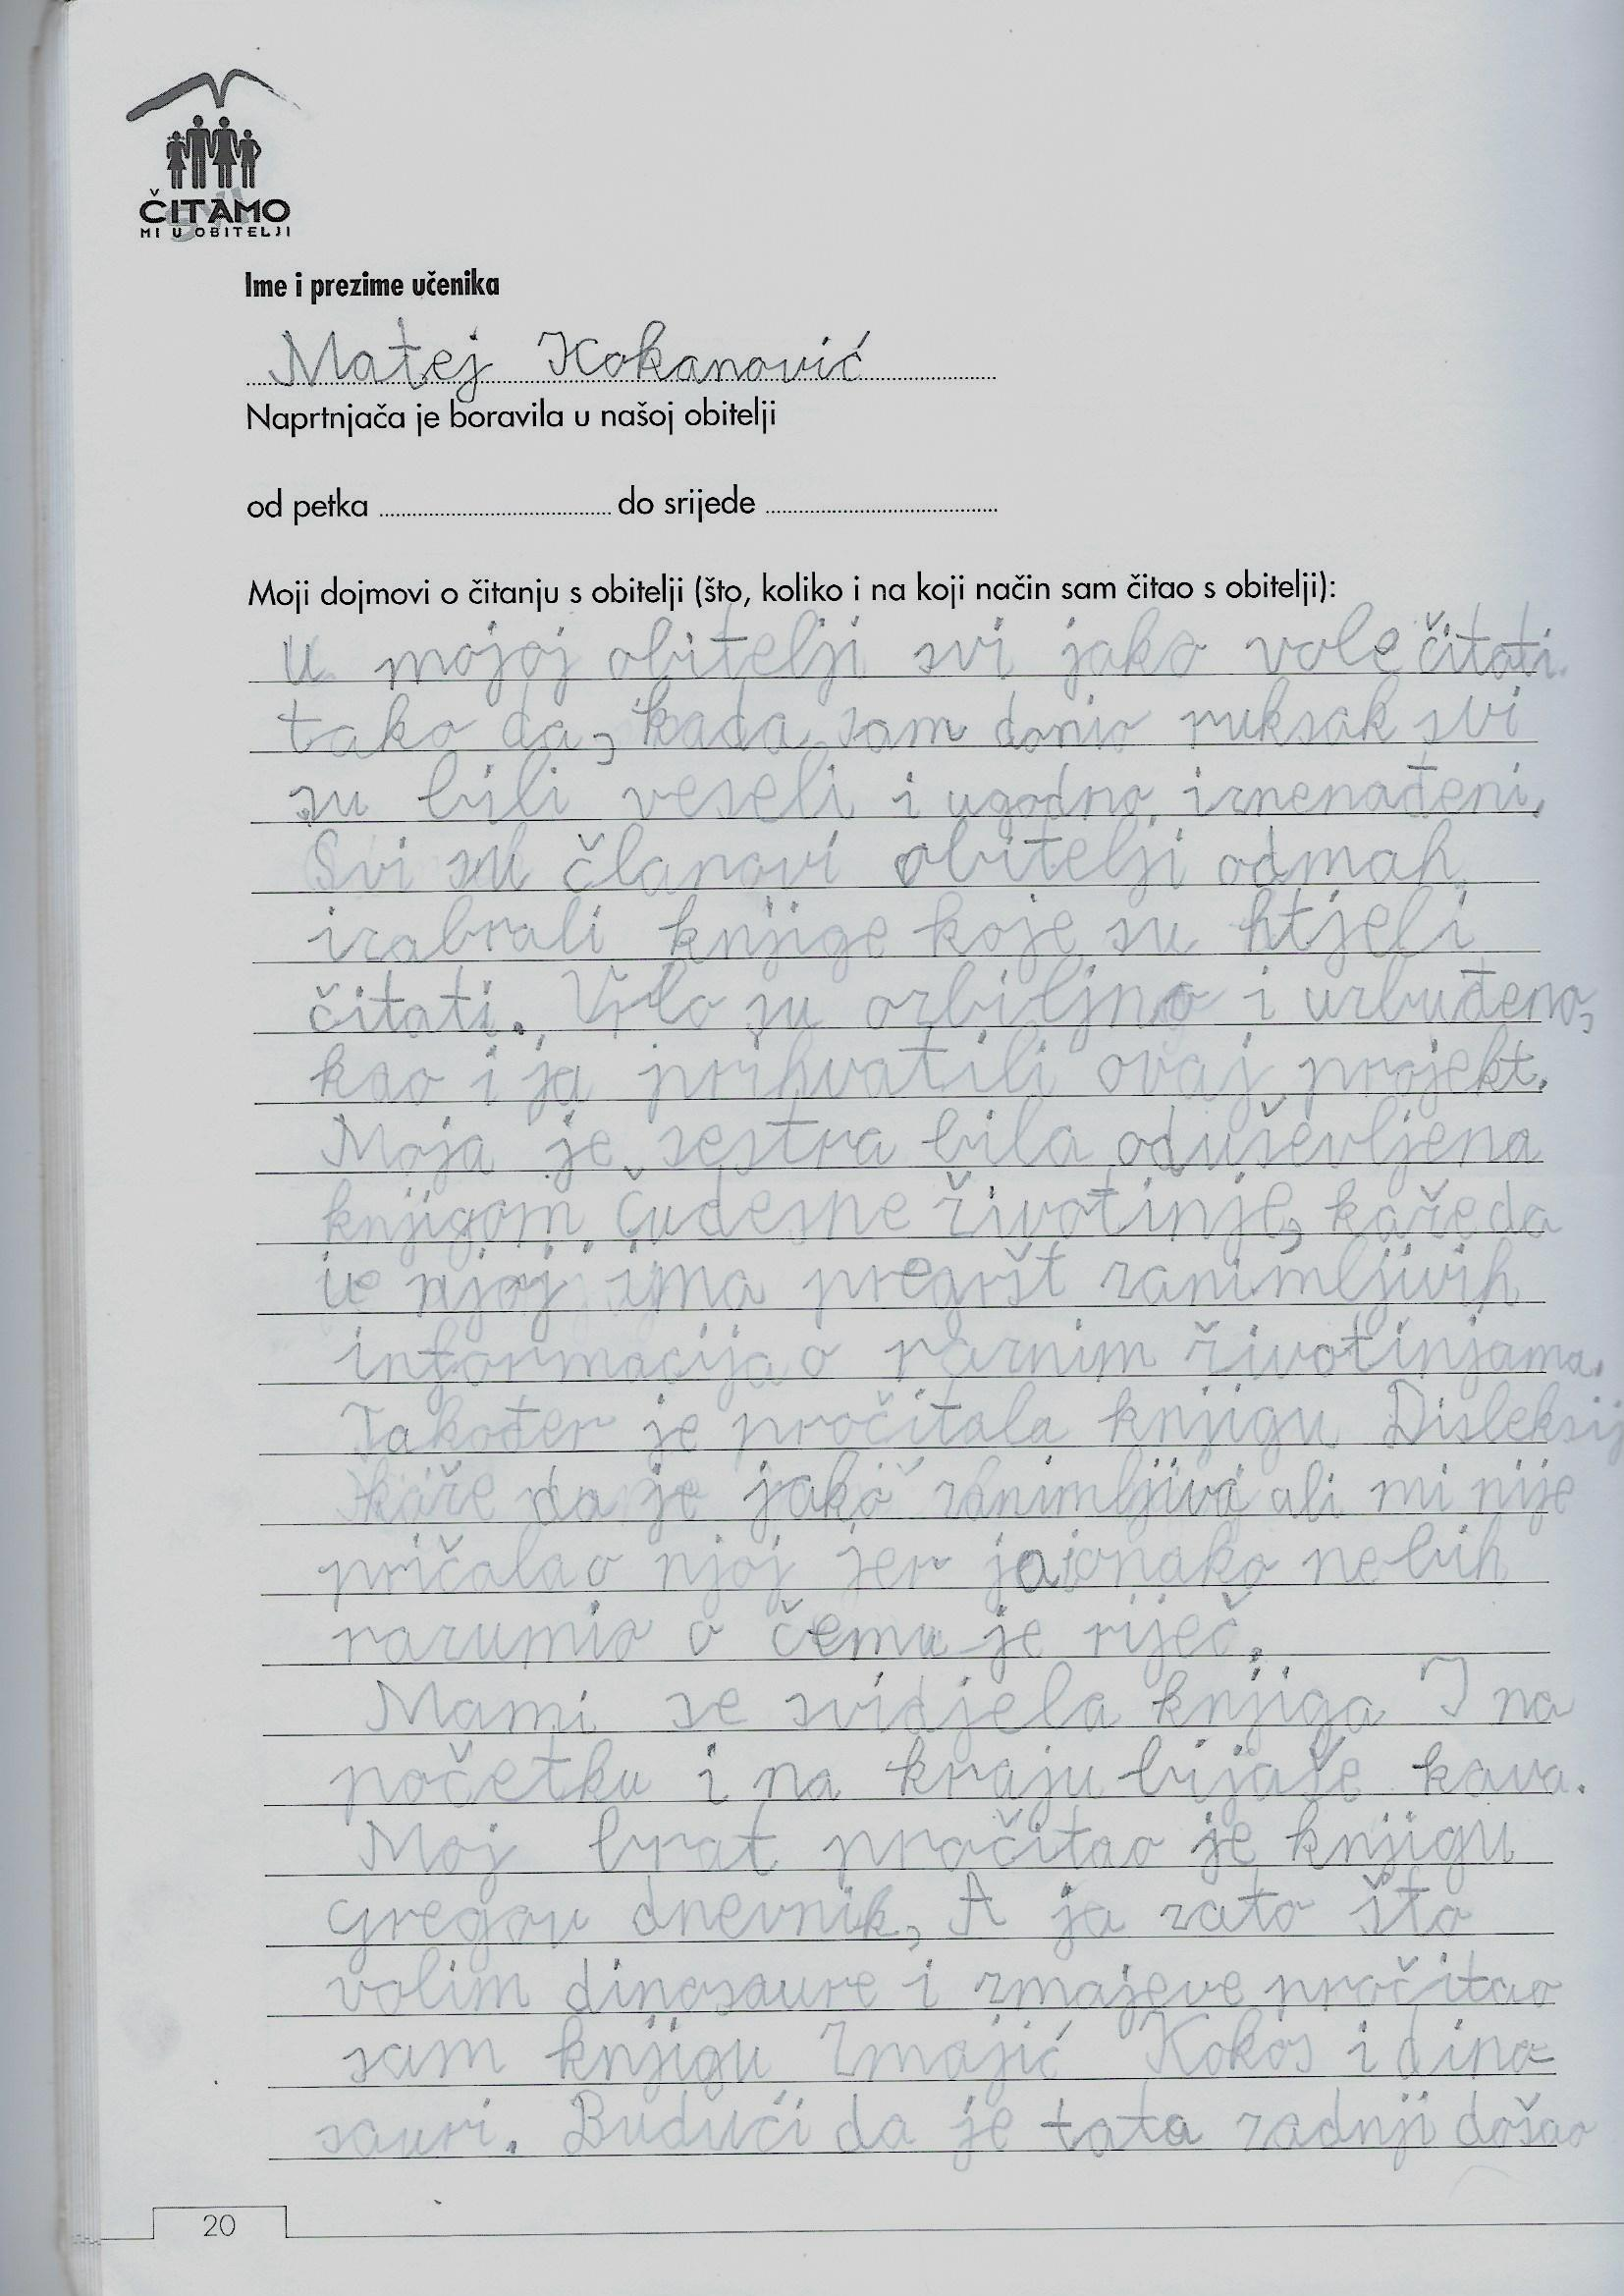 ČITAMO
MI U OBITELJI
Ime i prezime učenika
Matej Kokanović
Naprtnjača je boravila u našoj obitelji
od petka ........................ do srijede ........................
Moji dojmovi o čitanju s obitelji (što, koliko i na koji način sam čitao s obitelji):
U mojoj obitelji svi jako vole čitati
tako da, kada sam donio ruksak svi
su bili veseli i ugodno iznenađeni.
Svi su članovi obitelji odmah
izabrali knjige koje su htjeli
čitati. Vrlo su ozbiljno i uzbuđeno,
kao i ja prihvatili ovaj projekt.
Moja je sestra bila oduševljena
knjigom Čudesne životinje, kaže da
u njoj ima pregršt zanimljivih
informacija o raznim životinjama.
Također je pročitala knjigu Disleksij
kaže da je jako zanimljiva ali mi nije
pričala o njoj jer ja ionako nebih
razumio o čemu je riječ.
Mami se svidjela knjiga I na
početku i na kraju bijaše kava.
Moj brat pročitao je knjigu
Gregov dnevnik, A ja zato što
volim dinosaure i zmajeve pročitao
sam knjigu Zmajić Kokos i dino-
sauri. Budući da je tata zadnji došao
20